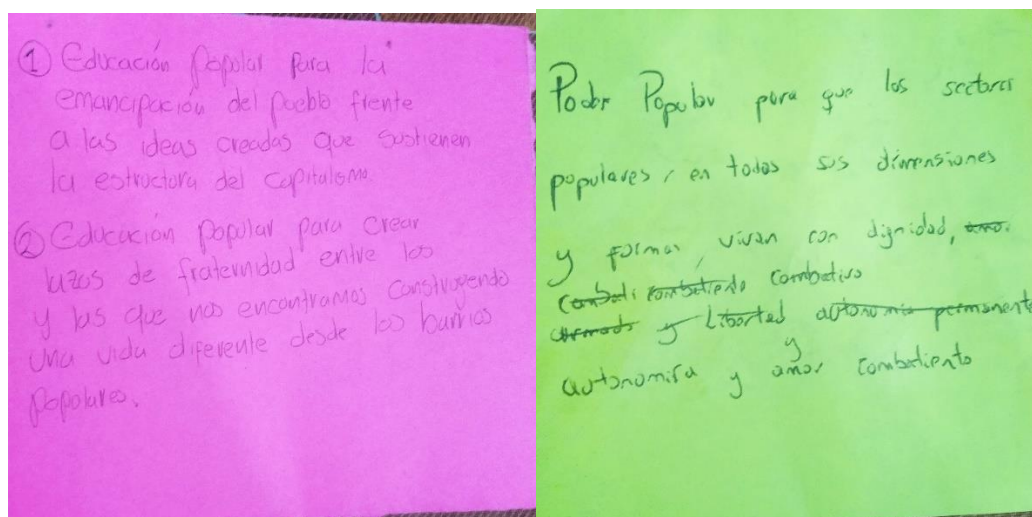 ① Educación Popular para la
emancipación del pueblo frente
a las ideas creadas que sostienen
la estructura del capitalismo.
② Educación Popular para crear
lazos de fraternidad entre los
y las que nos encontramos construyendo
una vida diferente desde los barrios
populares.
Poder Popular para que los sectores
populares, en todas sus dimensiones
y formas, vivan con dignidad,
combati combatiendo combativo
armado y libertad autonomia permanente
y
autonomía y amor combatiento